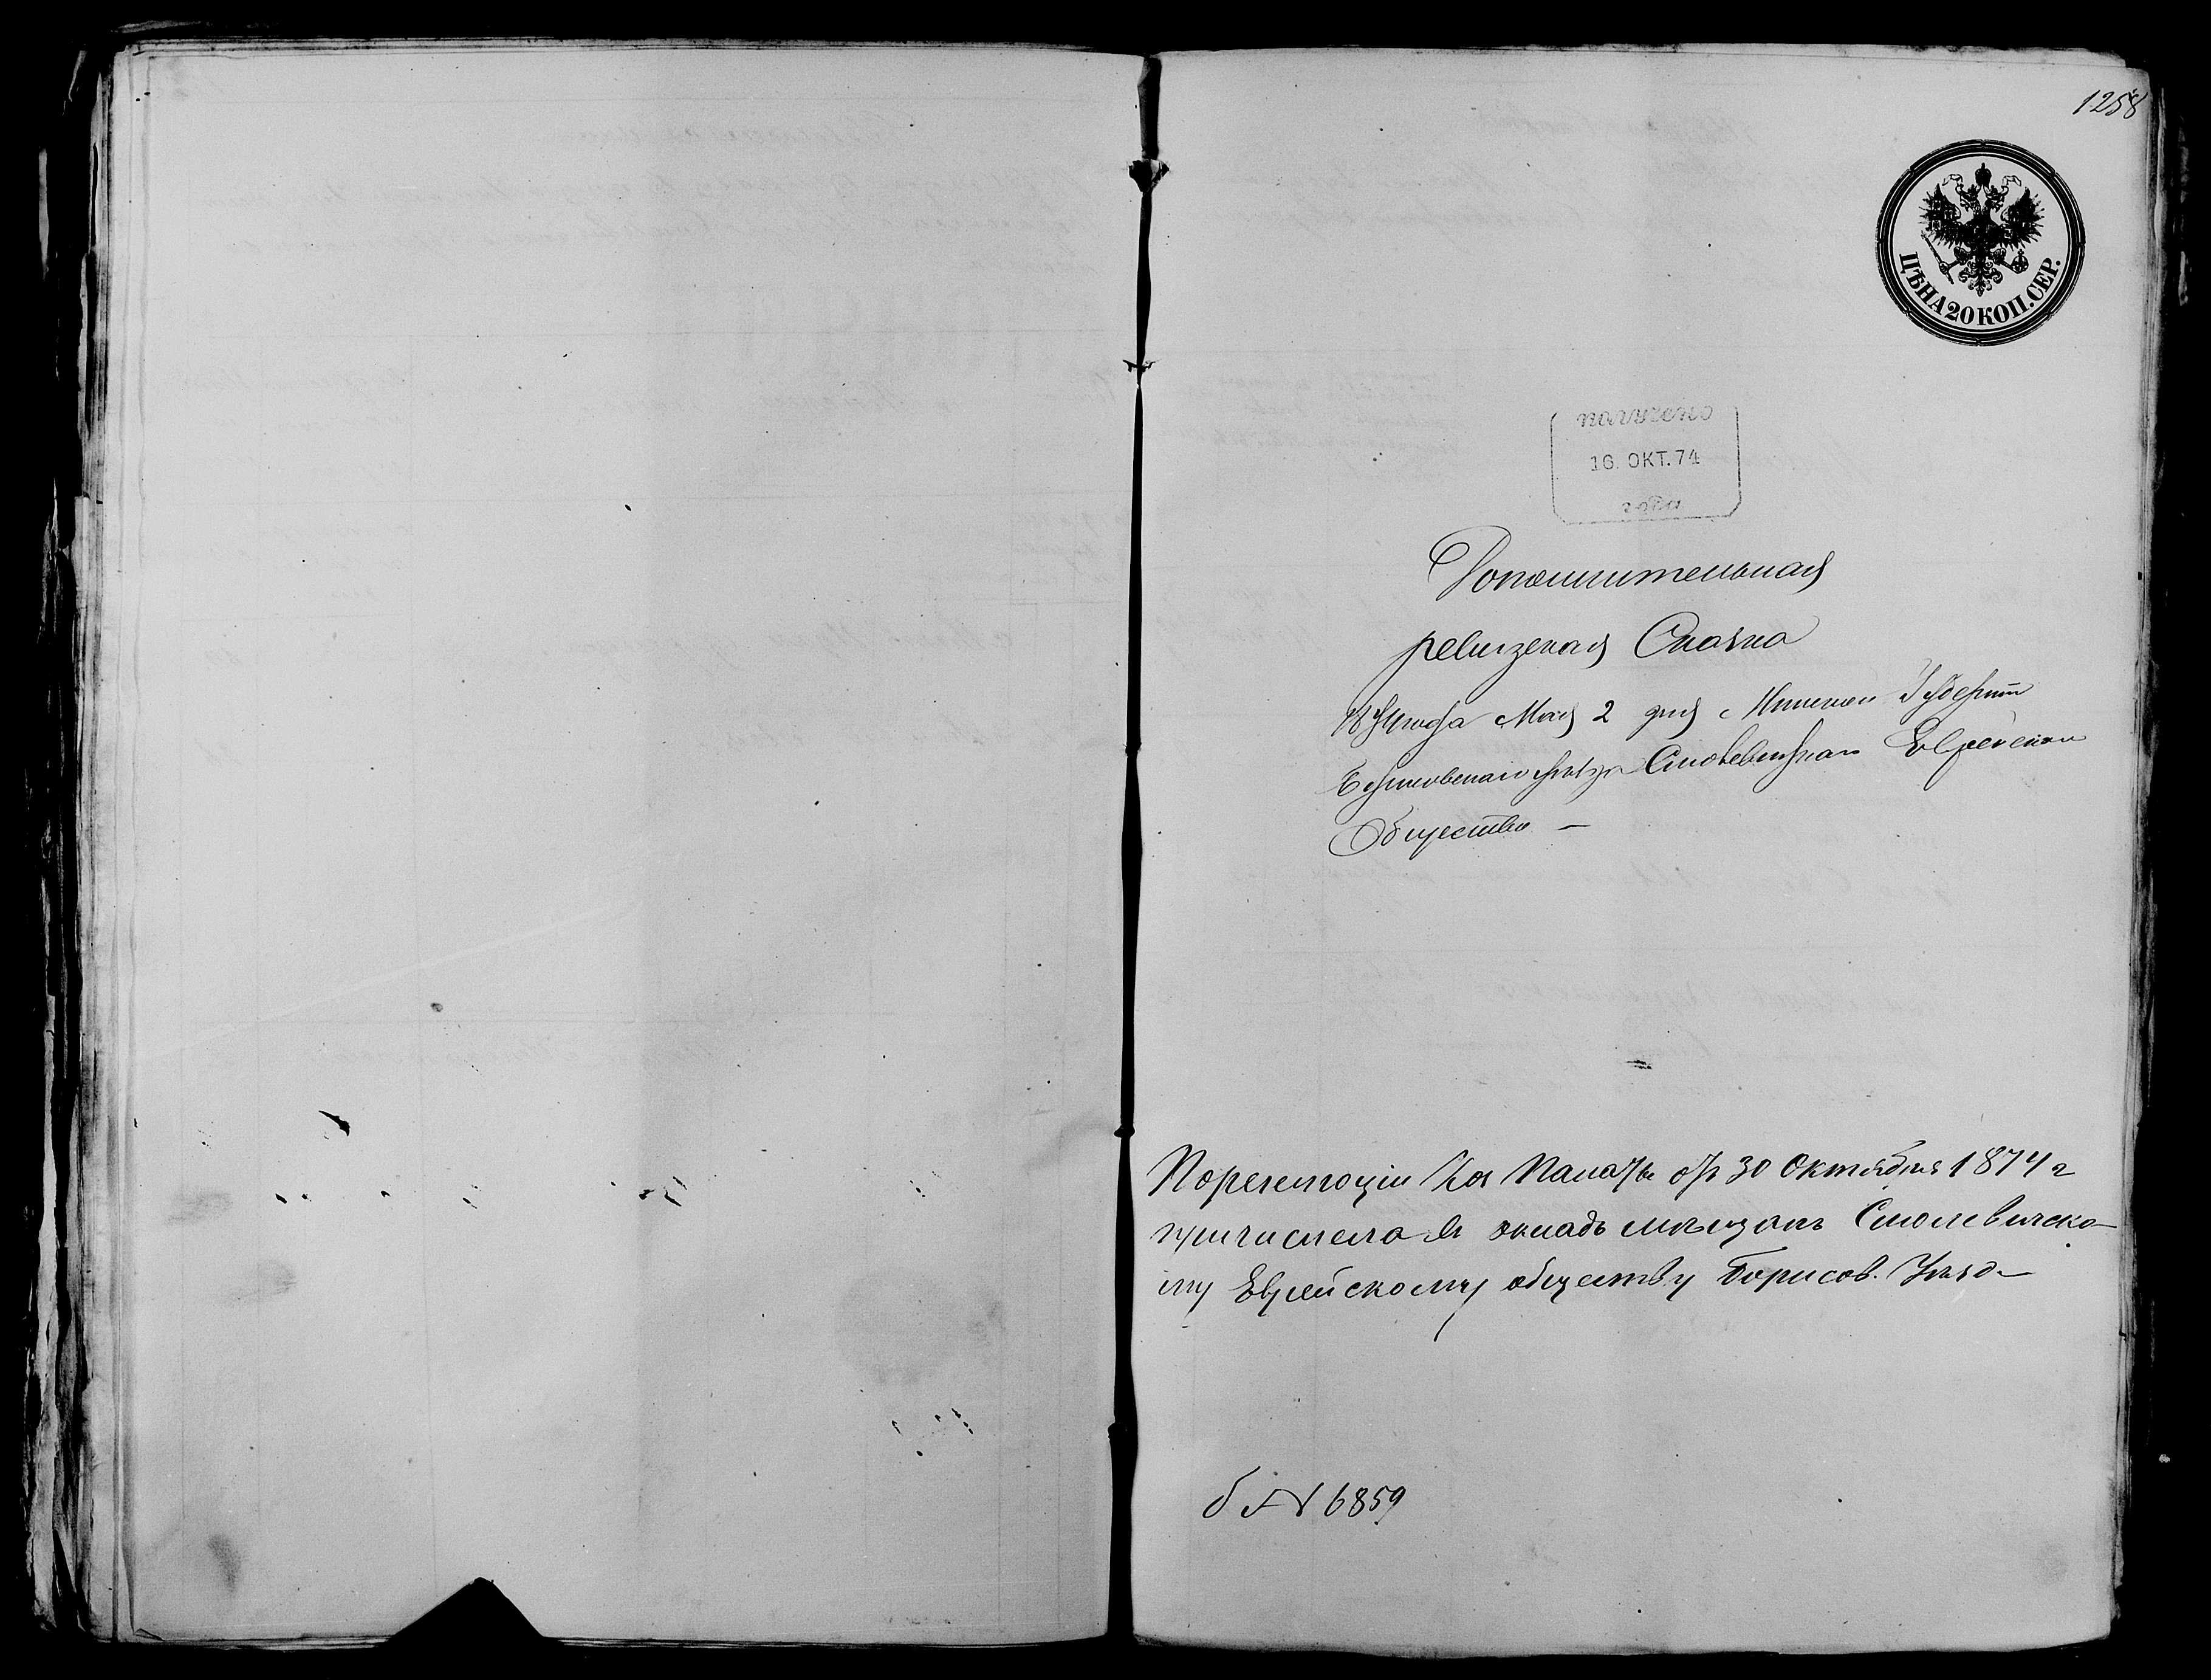 1258
ЦѢНА 20 КОП. СЕР.
получено
16. ОКТ. 74
года
Дополнительная
ревизская Сказка
Мая 2 дня Минской Губерніи
Борисовскаго уѣзда Смолевичскаго Еврейскаго
Общества —
По резолюціи Каз Палаты отъ 30 Октября 1874 г
причислена въ окладъ мѣщанъ Смолевичско-
му Еврейскому обществу Борисов. Уѣзд.
б № 6859